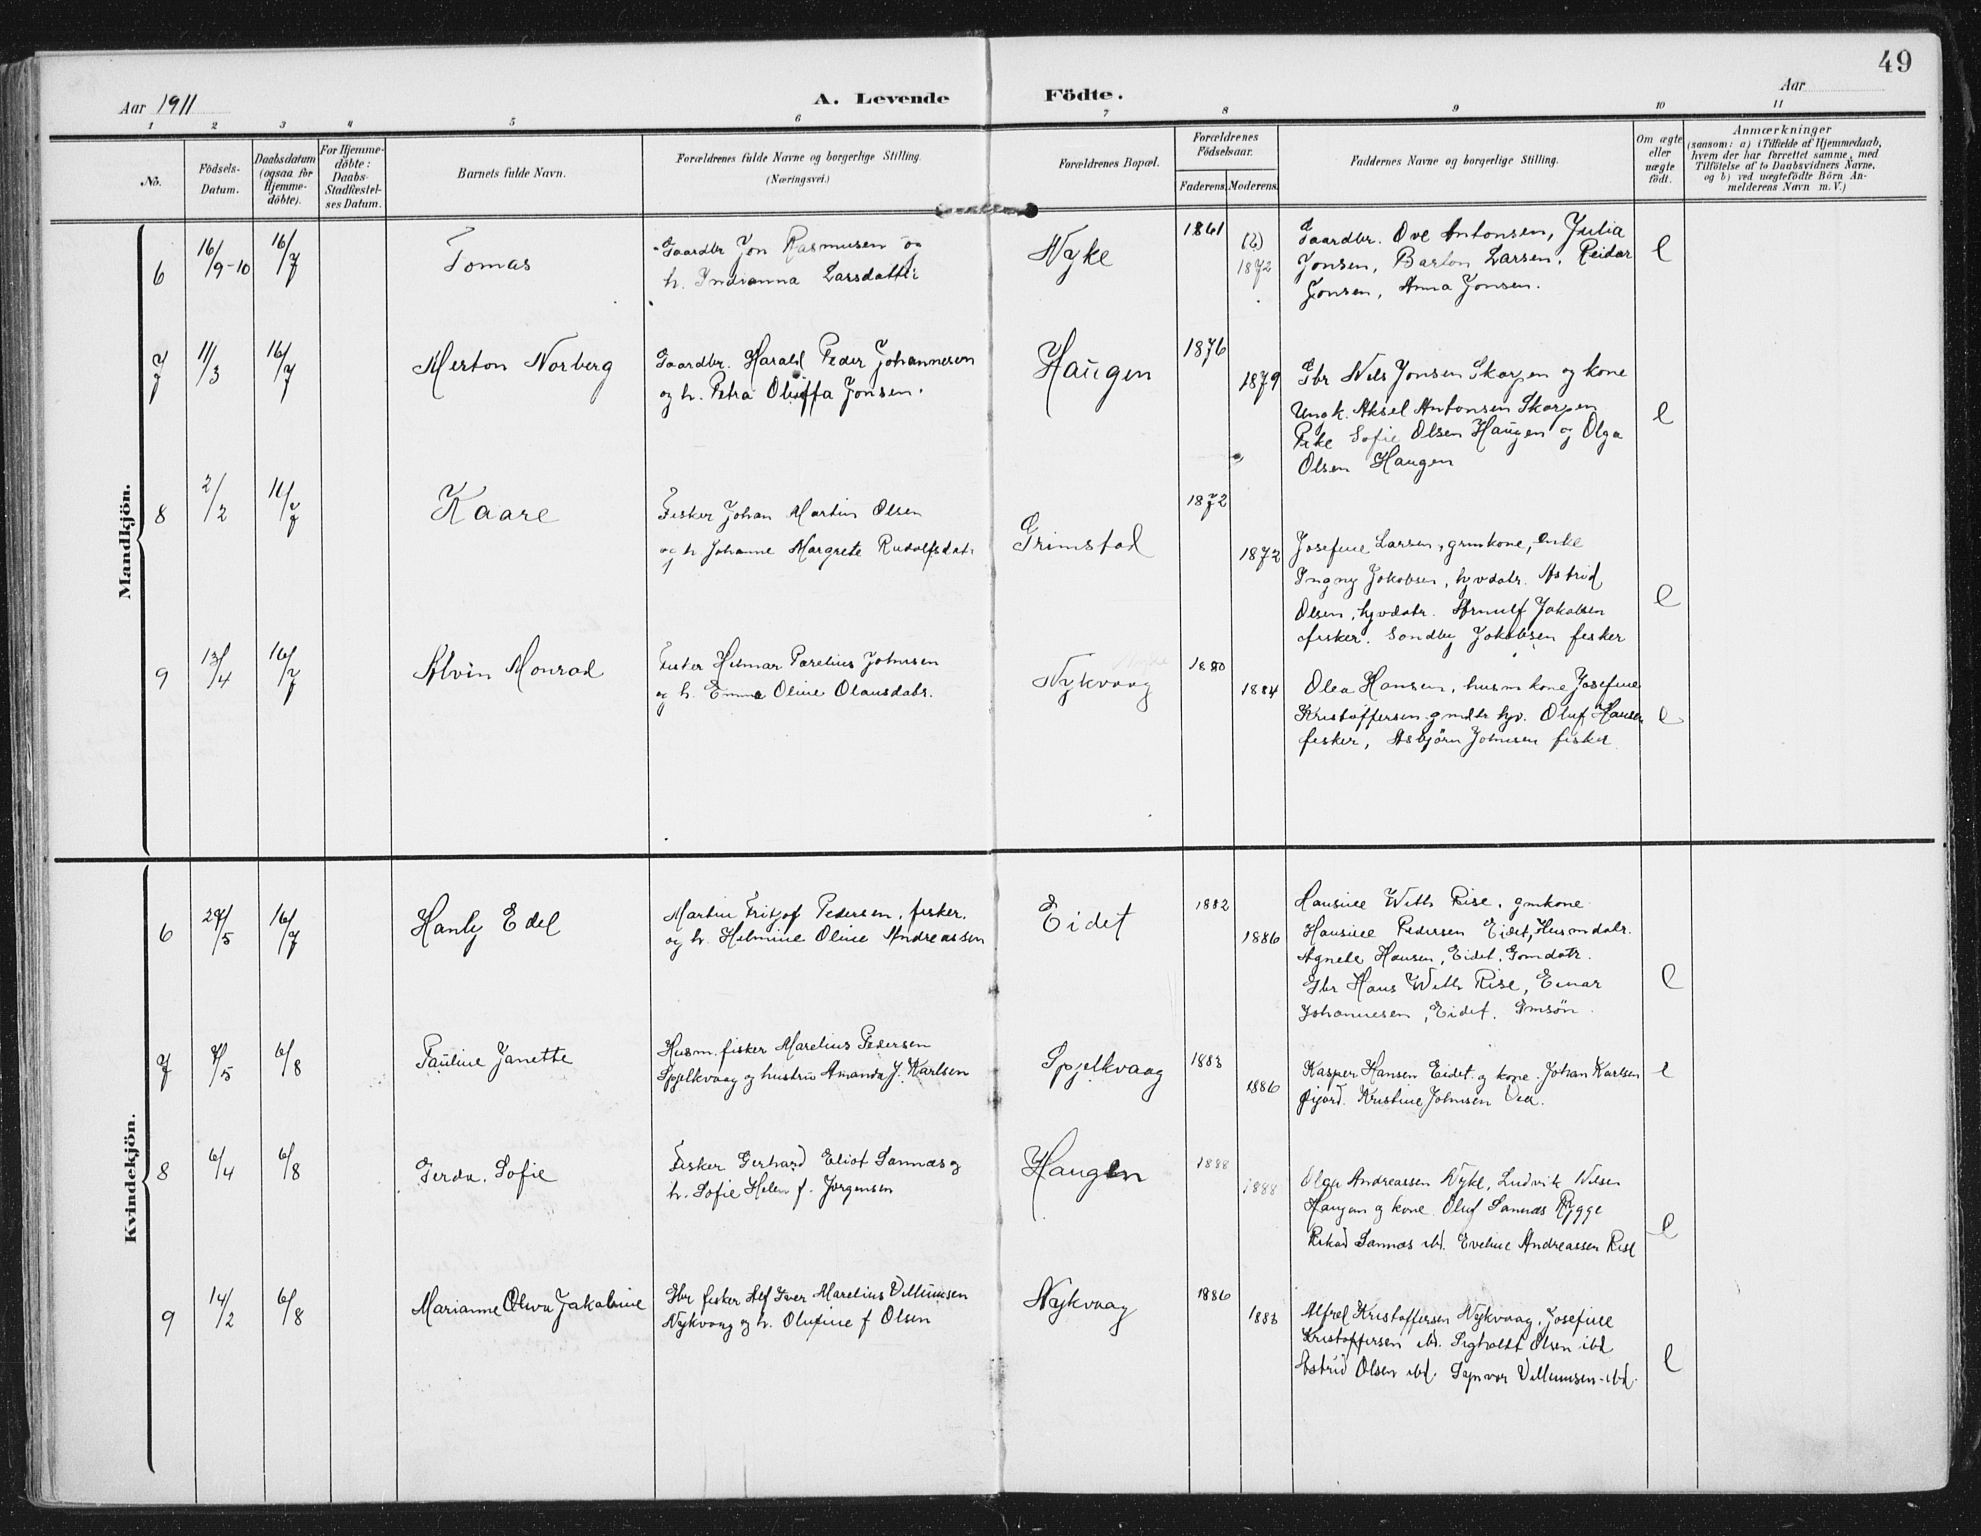 49
Aar 1911
A. Levende Födte.
Aar
1 2 3 4 5 6 7 8 9 10 11
No.
Födsels-
Datum.
Daabsdatum
(ogsaa for
Hjemme-
döbte).
For Hjemme-
döbte:
Daabs-
Stadfæstel-
ses Datum.
Barnets fulde Navn.
Forældrenes fulde Navne og borgerlige Stilling.
(Næringsvei.)
Forældrenes Bopæl.
Forældrenes
Födselsaar.
Faderens. Moderens.
Faddernes Navne og borgerlige Stilling.
Om ægte
eller
uægte
födt.
Anmærkninger
(saasom: a) i Tilfælde af Hjemmedaab,
hvem der har forrettet samme, med
Tilföielse af to Daabsvidners Navne,
og b) ved uægtefödte Börn An-
melderens Navn m. V.)
Mandkjön.
6 16/9-10 16/7 Tomas
Gaardbr Jon Rasmusen og
h. Indianna Larsdatter
Nyke
1861
1872
Gaardbr. Ove Antonsen, Julia
Jonsen, Barton Larsen, Reidar
Jonsen, Anna Jonsen.
e
7 11/3 16/7 Merton Norberg
Gaardbr. Harald Peder Johannesen
og h. Petra Oluffa Jonsen.
Haugen
1876
1879
Gbr Nels Jonsen Skarpen og kone
Ungk. Aksel Antonsen Skarpen
Pike Sofie Olsen Haugen og Olga
Olsen Haugen
e
8 2/2 16/7 Kaare
Fisker Johan Martin Olsen
og h. Johanne Margrete Rudolfsdatr
Grimstad
1872
1872
Josefine Larsen, grmkone, enke
Ingny Jakobsen, hjvdatr. Astrid
Olsen, hjvdatr. Arnulf Jakobsen
fisker. Sondby Jakobsen fisker
e
9 13/4 16/7 Alvin Monrad
Fisker Hilmar Parelius Johnsen
og h. Emma Oline Olausdatr.
Nykvaag
1880
1884
Olea Hansen, husm kone Josefine
Kristoffersen gmdtr hjv. Oluf Hansen
fisker, Asbjörn Johnsen fisker
e
Kvindekjön.
6 27/5 16/7 Hanly Edel
Martin Fritjof Pedersen, fisker.
og h. Helmine Oline Andreassen
Eidet
1882
1886
Hansine With Rise, gmkone
Hansine Pedersen Eidet, Husmdatr.
Agnete Hansen, Eidet, Gomdatr.
Gbr Hans With Rise, Einar
Johannesen, Eidet. Gmsön.
e
7 7/5 6/8 Pauline Janette
Husm. fisker Marelius Pedersen
Spjelkvaag og hustru Amanda J. Karlsen
Spjelkvaag
1883
1886
Kasper Hansen Eidet og kone. Johan Karlsen
Kristine Johnsen
e
8 6/4 6/8 Gerda. Sofie
Fisker Gerhard Eliot Sannes og
h. Sofie Helen f. Jørgensen
Haugen
1888
1888
Olga Andreassen Nyke, Ludvik Nilsen
Haugen og kone. Oluf Sannes Rygge
Rikard Sannes ibd. Eveline Andreassen Rise
e
9 14/2 6/8 Marianne Olava Jakobine
Gbr fisker Alf Iver Marelius Villumsen
Nykvaag og h. Olufine f Olsen
Nykvaag
1886
1883
Alfred Kristoffersen Nykvaag, Josefine
Kristoffersen ibd. Sigholdt Olsen ibd
Astrid Olsen ibd. Signvor Villumsen ibd.
e